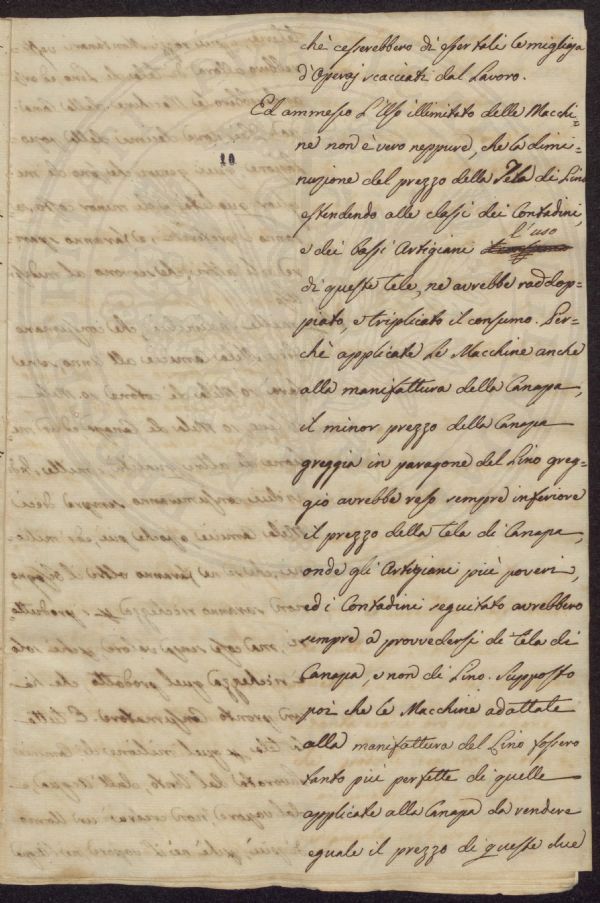 chè cesserebbero di esser tali le migliaja
d'Operaj scacciati dal Lavoro.
Ed ammesso l'Uso illimitato delle Macchi=
ne non è vero neppure, che la dimi=
10
nuzione del prezzo della Tela di Lino
estendendo alle classi dei Contadini,
e dei bassi Artigiani l'uso
di queste Tele, ne avrebbe raddop=
piato, e triplicato il consumo. Per=
chè applicate le Macchine anche
alla manifattura della Canapa,
il minor prezzo della Canapa
greggia in paragone del Lino greg=
gio avrebbe reso sempre inferiore
il prezzo della Tela di Canapa,
onde gli Artigiani più poveri,
ed i Contadini seguitato avrebbero
sempre a provvedersi di Tela di
Canapa, e non di Lino. Supposto
poi che le Macchine adattate
alla manifattura del Lino fossero
tanto più perfette di quelle
applicate alla Canapa da rendere
eguale il prezzo di queste due